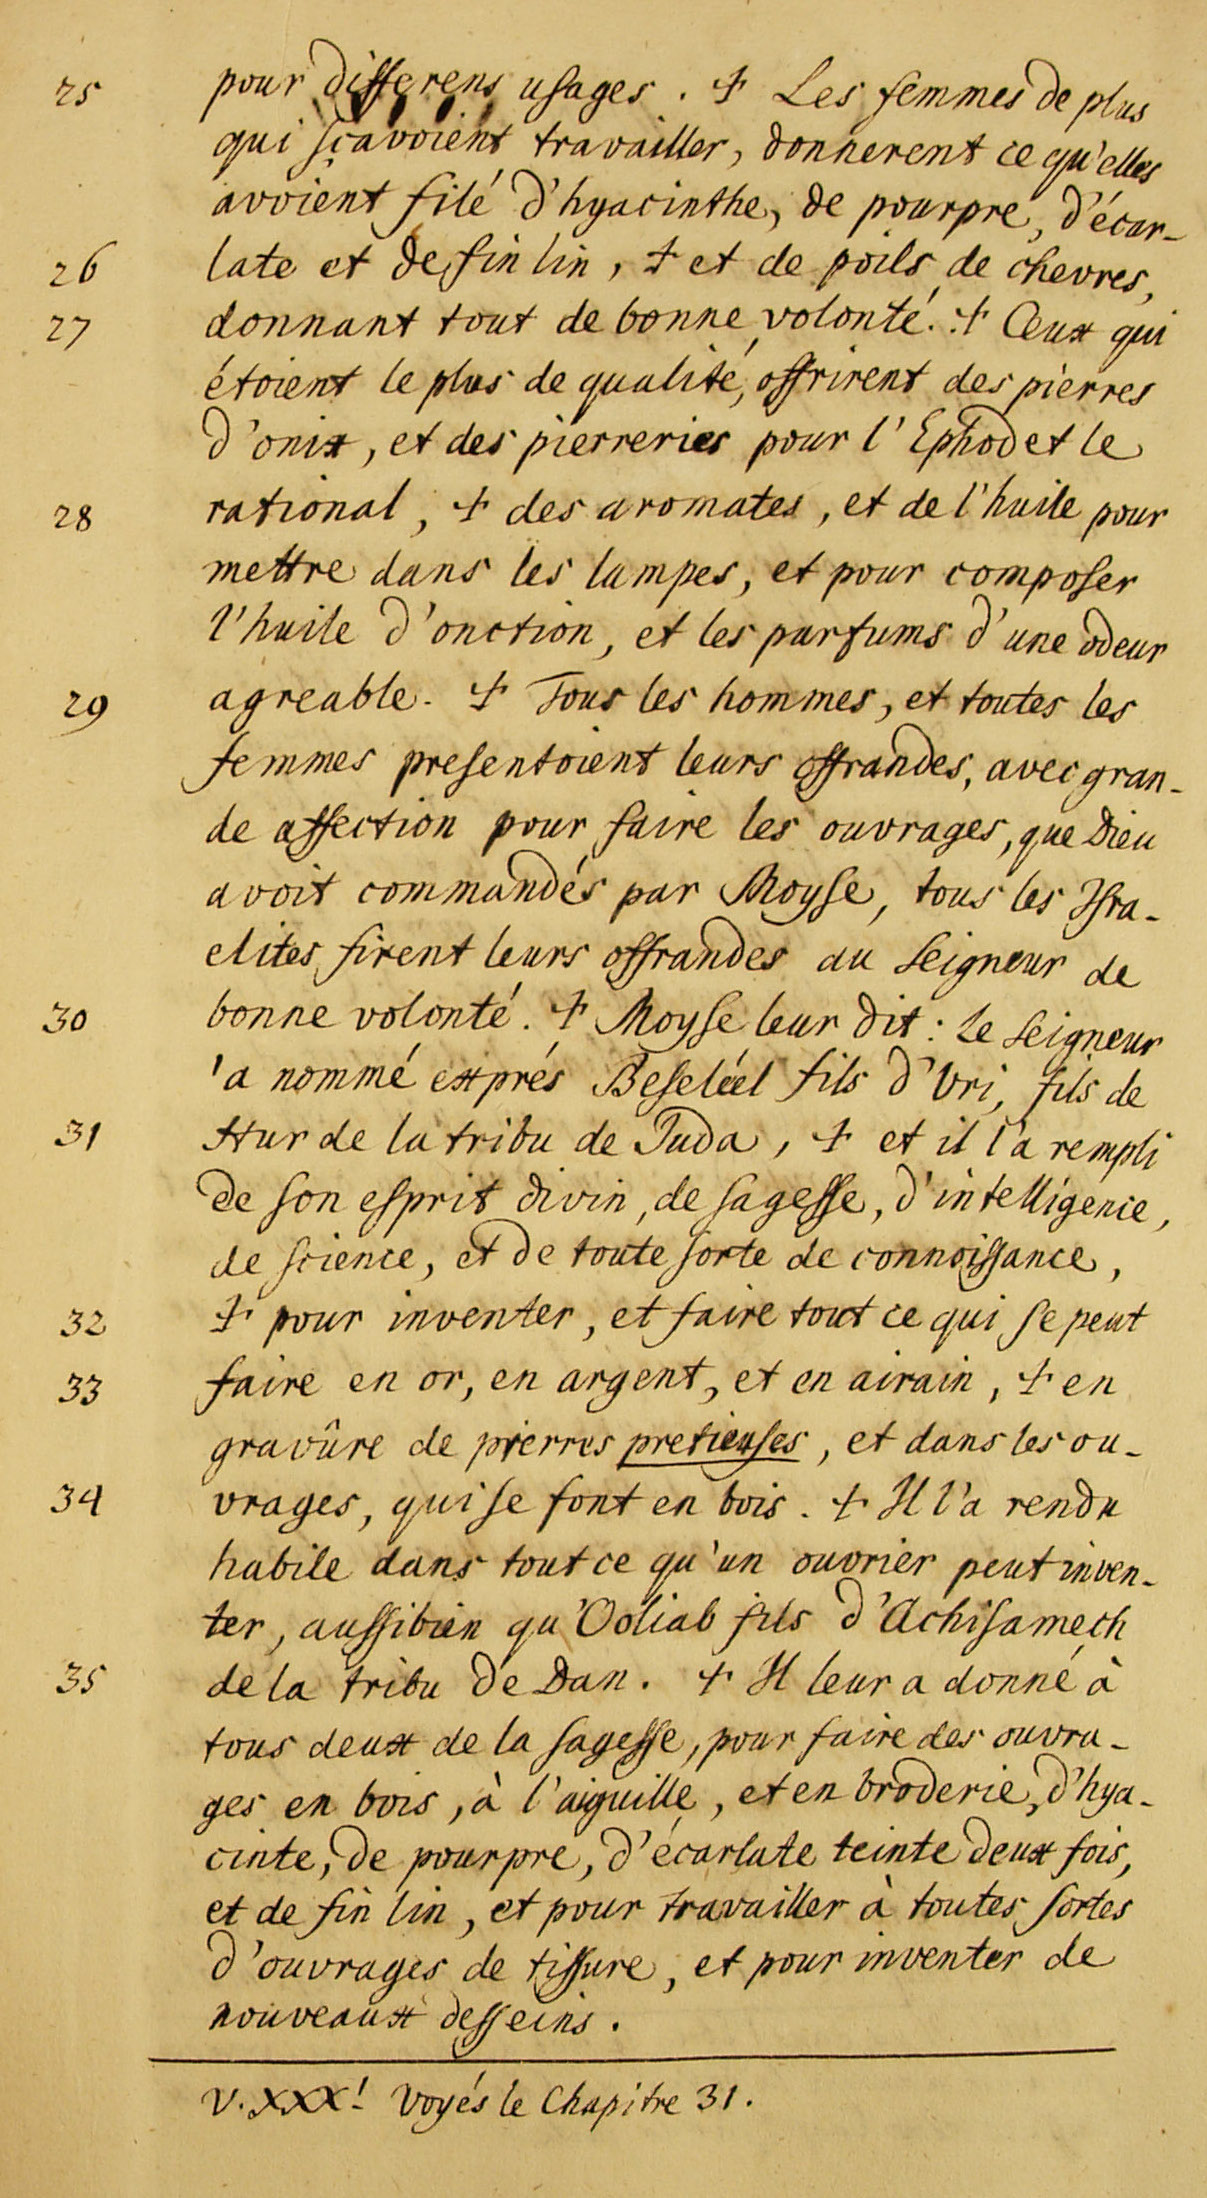 25 pour differens usages. + Les femmes de plus
qui sçavoient travailler, donnerent ce qu'elles
avoient filé d'hyacinthe, de pourpre, d'écar-
26 late et de fin lin, + et de poils de chevres,
27 donnant tout de bonne volonté. + Ceux qui
étoient le plus de qualité, offrirent des pierres
d'onix, et des pierreries pour l'Ephod et le
28 rational, + des aromates, et de l'huile pour
mettre dans les lampes, et pour composer
l'huile d'onction, et les parfums d'une odeur
29 agreable. + Tous les hommes, et toutes les
femmes presentoient leurs offrandes, avec gran-
de affection pour faire les ouvrages, que Dieu
avoit commandés par Moyse, tous les Isra-
elites firent leurs offrandes au Seigneur de
30 bonne volonté. + Moyse leur dit: le Seigneur
'a nommé exprés Beseléel fils d'Uri, fils de
31 Hur de la tribu de Juda, + et il l'a rempli
de son esprit divin, de sagesse, d'intelligence,
de science, et de toute sorte de connoissance,
32 + pour inventer, et faire tout ce qui se peut
33 faire en or, en argent, et en airain, + en
gravûre de pierres pretieuses, et dans les ou-
34 vrages, qui se font en bois. + Il l'a rendu
habile dans tout ce qu'un ouvrier peut inven-
ter, aussibien qu'Ooliab fils d'Achisamech
35 de la tribu de Dan. + Il leur a donné à
tous deux de la sagesse, pour faire des ouvra-
ges en bois, à l'aiguille, et en broderie, d'hya-
cinte, de pourpre, d'écarlate teinte deux fois,
et de fin lin, et pour travailler à toutes sortes
d'ouvrages de tissure, et pour inventer de
nouveaux desseins.
V. XXX! Voyés le Chapitre 31.